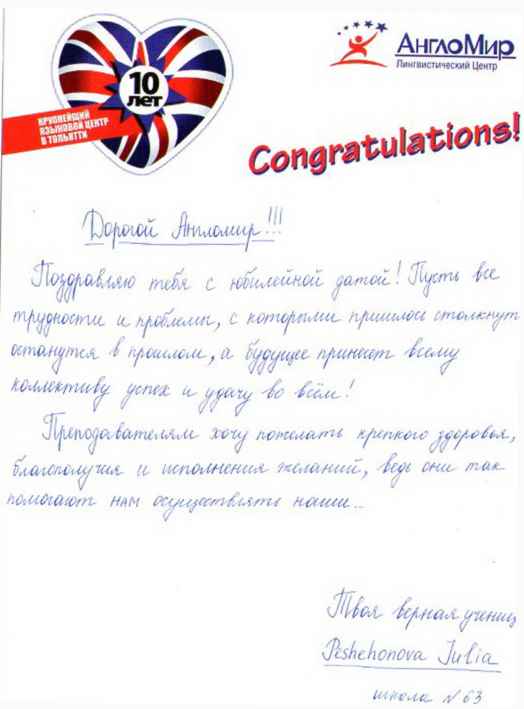 10
лет
КРУПНЕЙШИЙ
ЯЗЫКОВОЙ ЦЕНТР
В ТОЛЬЯТТИ
АнглоМир
Лингвистический Центр
Congratulations!
Дорогой Англомир!!!
Поздравляю тебя с юбилейной датой! Пусть все
трудности и проблемы, с которыми пришлось столкнут
останутся в прошлом, а будущее принесёт всему
коллективу успех и удачу во всём!
Преподавателям хочу пожелать крепкого здоровья,
благополучия и исполнения желаний, ведь они так
помогают нам осуществлять наши...
Твоя верная учениц
Peshehonova Julia
школа N 63